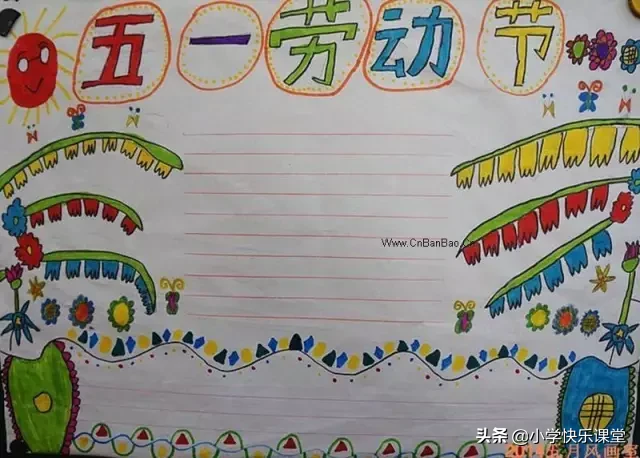 五一劳动节
Www.CnBanBao.
头条@小学快乐课堂